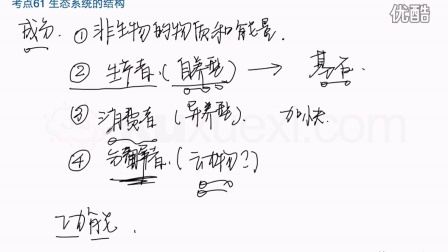 考点61 生态系统的结构
优酷
成分. ① 非生物的物质和能量.
② 生产者.(自养型) → 基石.
③ 消费者(异养型). 加快.
④ 分解者.(动物?)
功能.